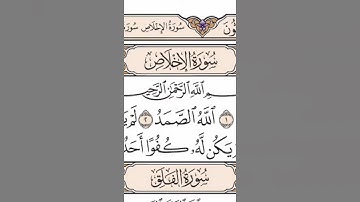 سُورَةُ الإِخْلَاصِ
سُورَةُ الإِخْلَاصِ
ٱللَّهِ ٱلرَّحْمَٰنِ ٱلرَّحِيمِ
١ ٱللَّهُ ٱلصَّمَدُ ٢ لَمْ
يَكُن لَّهُۥ كُفُوًا أَحَدُ
سُورَةُ الفَلَقِ